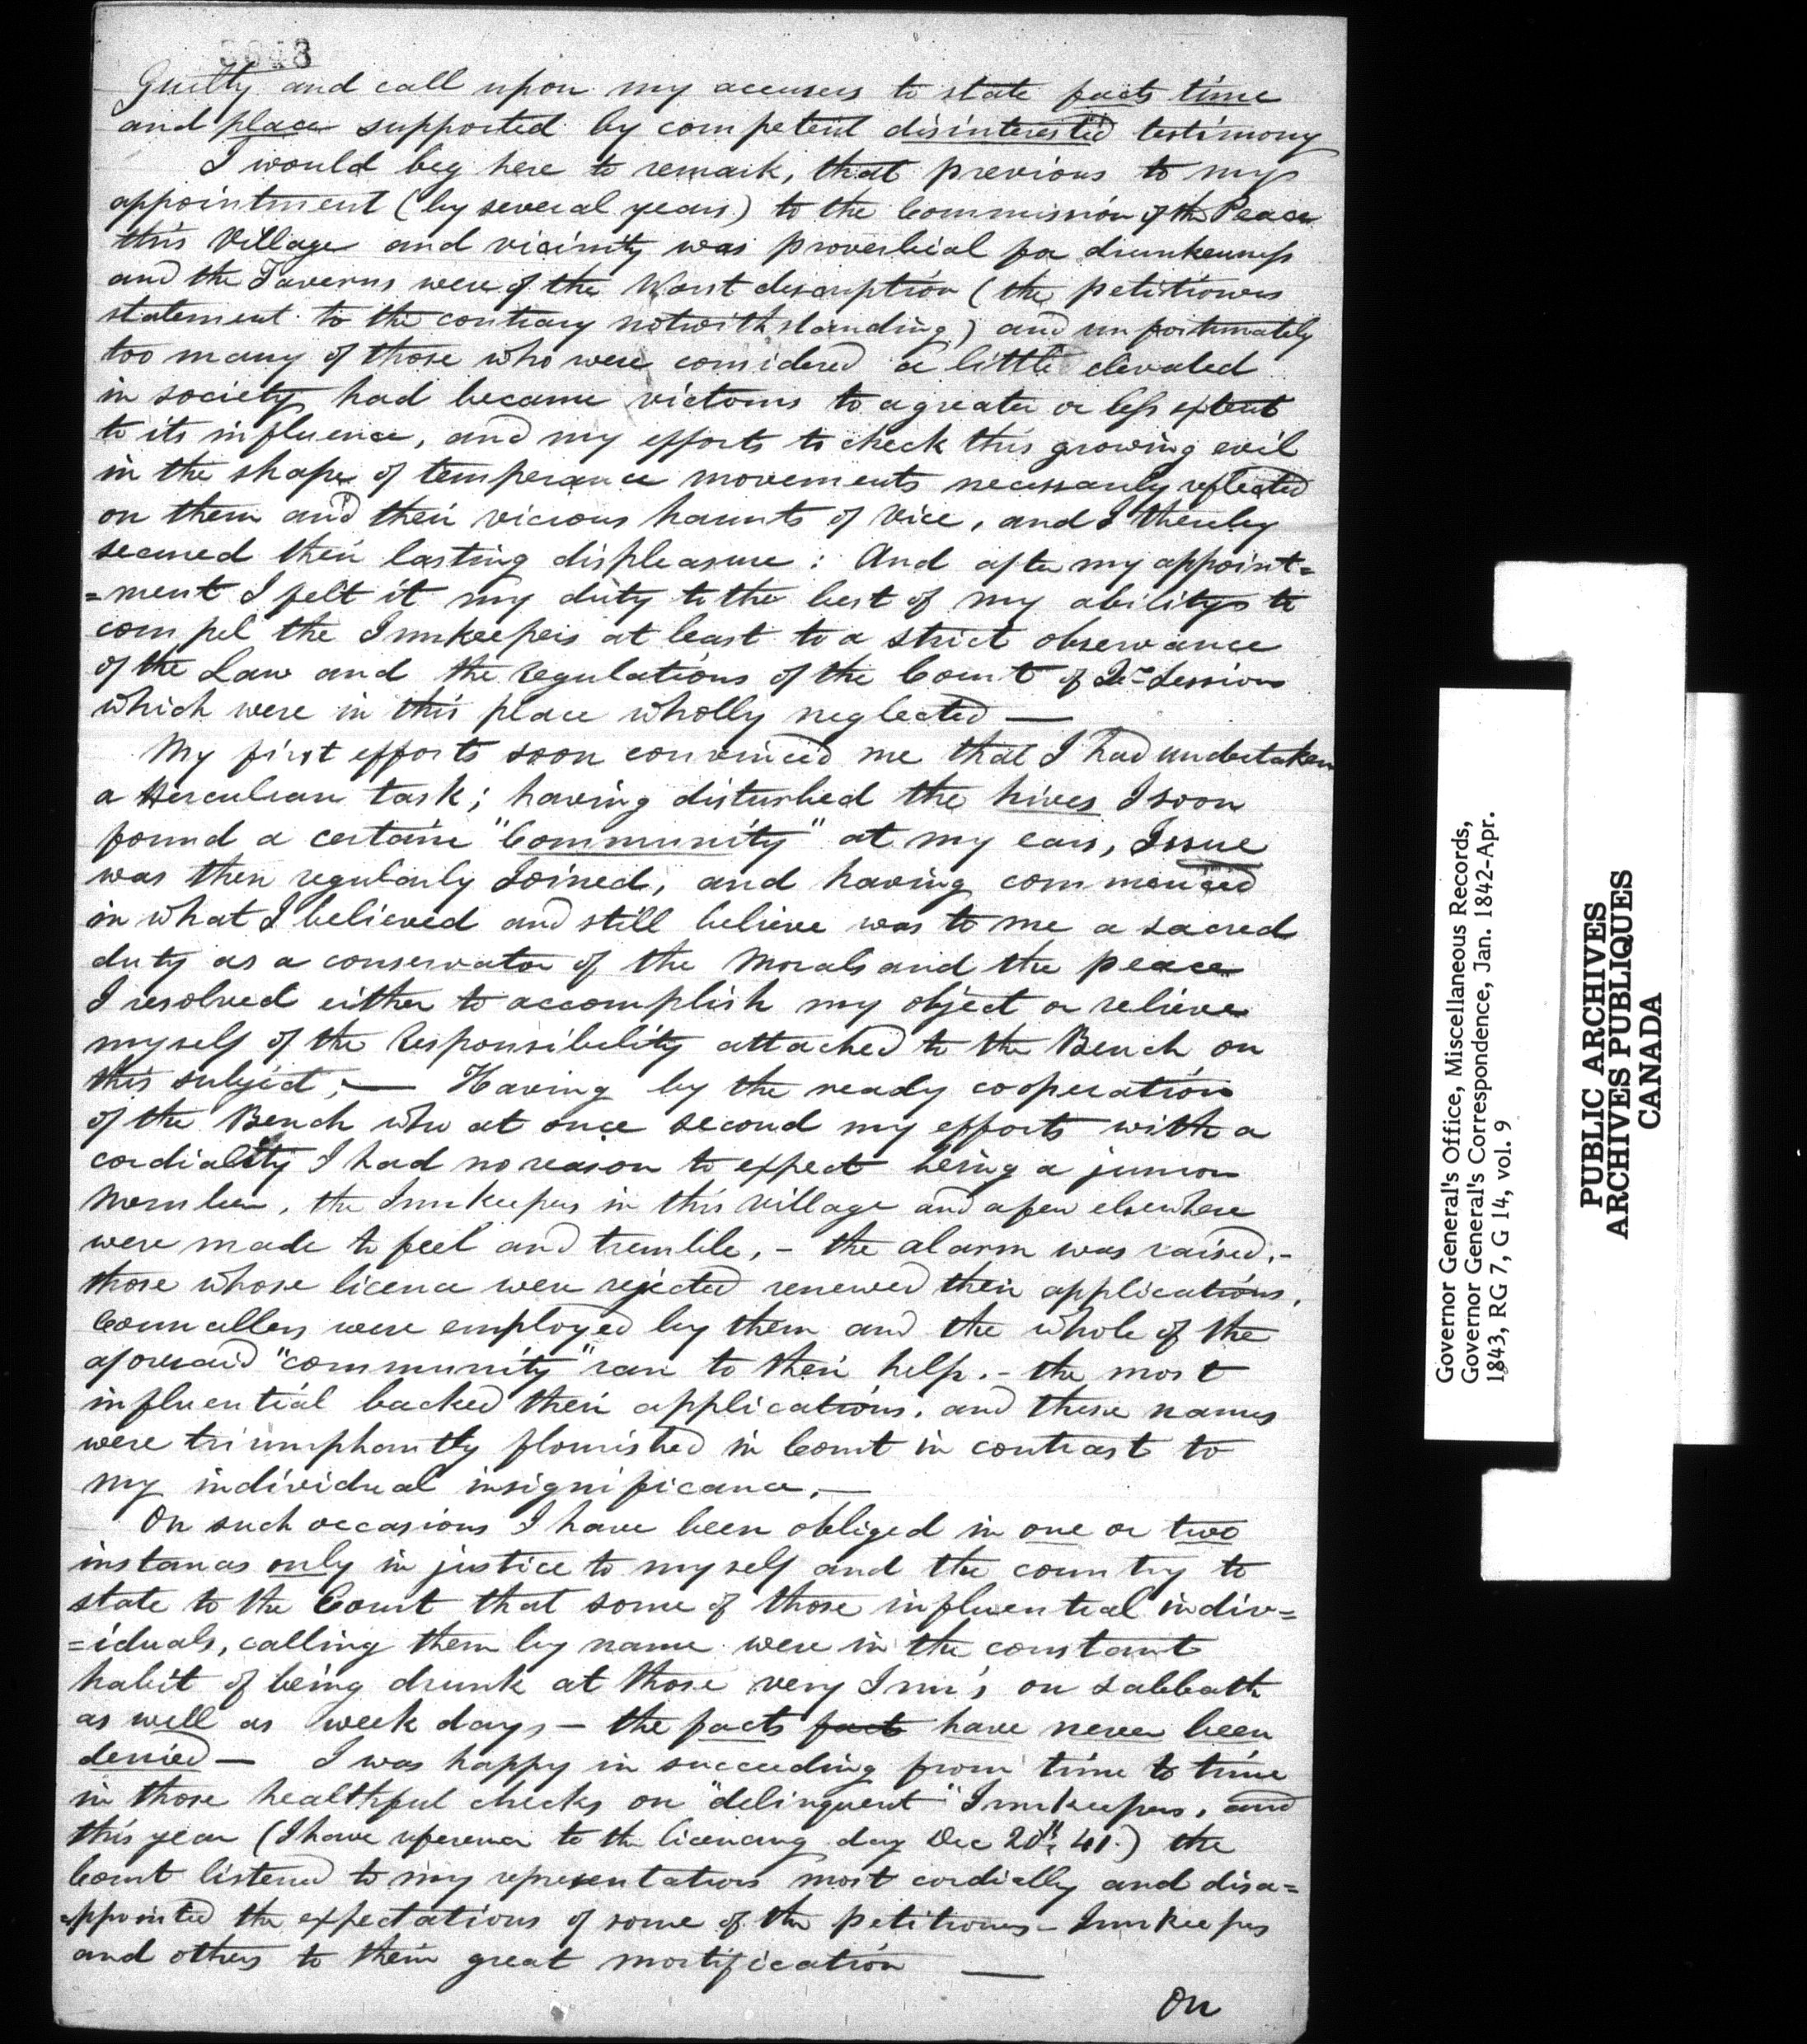 3643
Guilty and call upon my accusers to state facts time
and place supported by competent disinterested testimony
I would beg here to remark, that previous to my
appointment (by several years) to the Commission of the Peace
this Village and vicinity was proverbial for drunkenness
and the Taverns were of the Worst description (the petitioners
statement to the contrary notwithstanding) and unfortunately
too many of those who were considered a little elevated
in society had became victoms to a greater or less extent
to its influence, and my efforts to check this growing evil
in the shape of temperance movements necessarily reflected
on them and their vicious haunts of vice, and I thereby
secured their lasting displeasure: And after my appoint=
=ment I felt it my duty to the best of my abilitys to
compel the Innkeepers at least to a strict observance
of the Law and the regulations of the Court of Qr Sessions
which were in this place wholly neglected —
My first efforts soon convinced me that I had undertaken
a Herculean task; having disturbed the hives I soon
found a certain "Community" at my ears, Issue
was then regularly Joined, and having commenced
in what I believed and still believe was to me a sacred
duty as a conservator of the Morals and the peace
I resolved either to accomplish my object or relieve
myself of the Responsibility attached to the Bench on
this subject, — Having by the ready cooperation
of the Bench who at once second my efforts with a
cordiality I had no reason to expect being a junior
Member, the Innkeepers in this village and a few elsewhere
were made to feel and tremble, - the alarm was raised, -
those whose licence were rejected renewed their applications,
Councellers were employed by them and the whole of the
aforesaid "community" ran to their help. - the most
influential backed their applications, and these names
were triumphantly flourished in Court in contrast to
my individual insignificance. —
On such occasions I have been obliged in one or two
instances only in justice to myself and the country to
state to the Court that some of those influential indiv=
=iduals, calling them by name were in the constant
habit of being drunk at those very Inn's on Sabbath
as well as week days — the facts facts have never been
denied — I was happy in succeeding from time to time
in those healthful checks on "delinquent" Innkeepers, and
this year (I have reference to the licencing day Dec 20th 41.) the
Court listened to my representations most cordially and disa=
=ppointed the expectations of some of the petitioners - Innkeepers
and others to their great mortification —
On
Governor General's Office, Miscellaneous Records,
Governor General's Correspondence, Jan. 1842-Apr.
1843, RG 7, G 14, vol. 9
PUBLIC ARCHIVES
ARCHIVES PUBLIQUES
CANADA